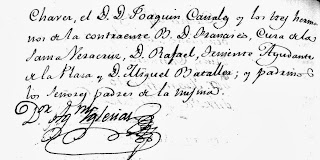 Chavez, el D. D. Joaquin y los tres herma
nos de la contraente B. D. Cura de la
Santa Veracruz, D. Rafael, Teniente Ayudante
de la Plaza y D. Miguel Bataller; y padrinos
los señores padres de la misma.
Iglesias